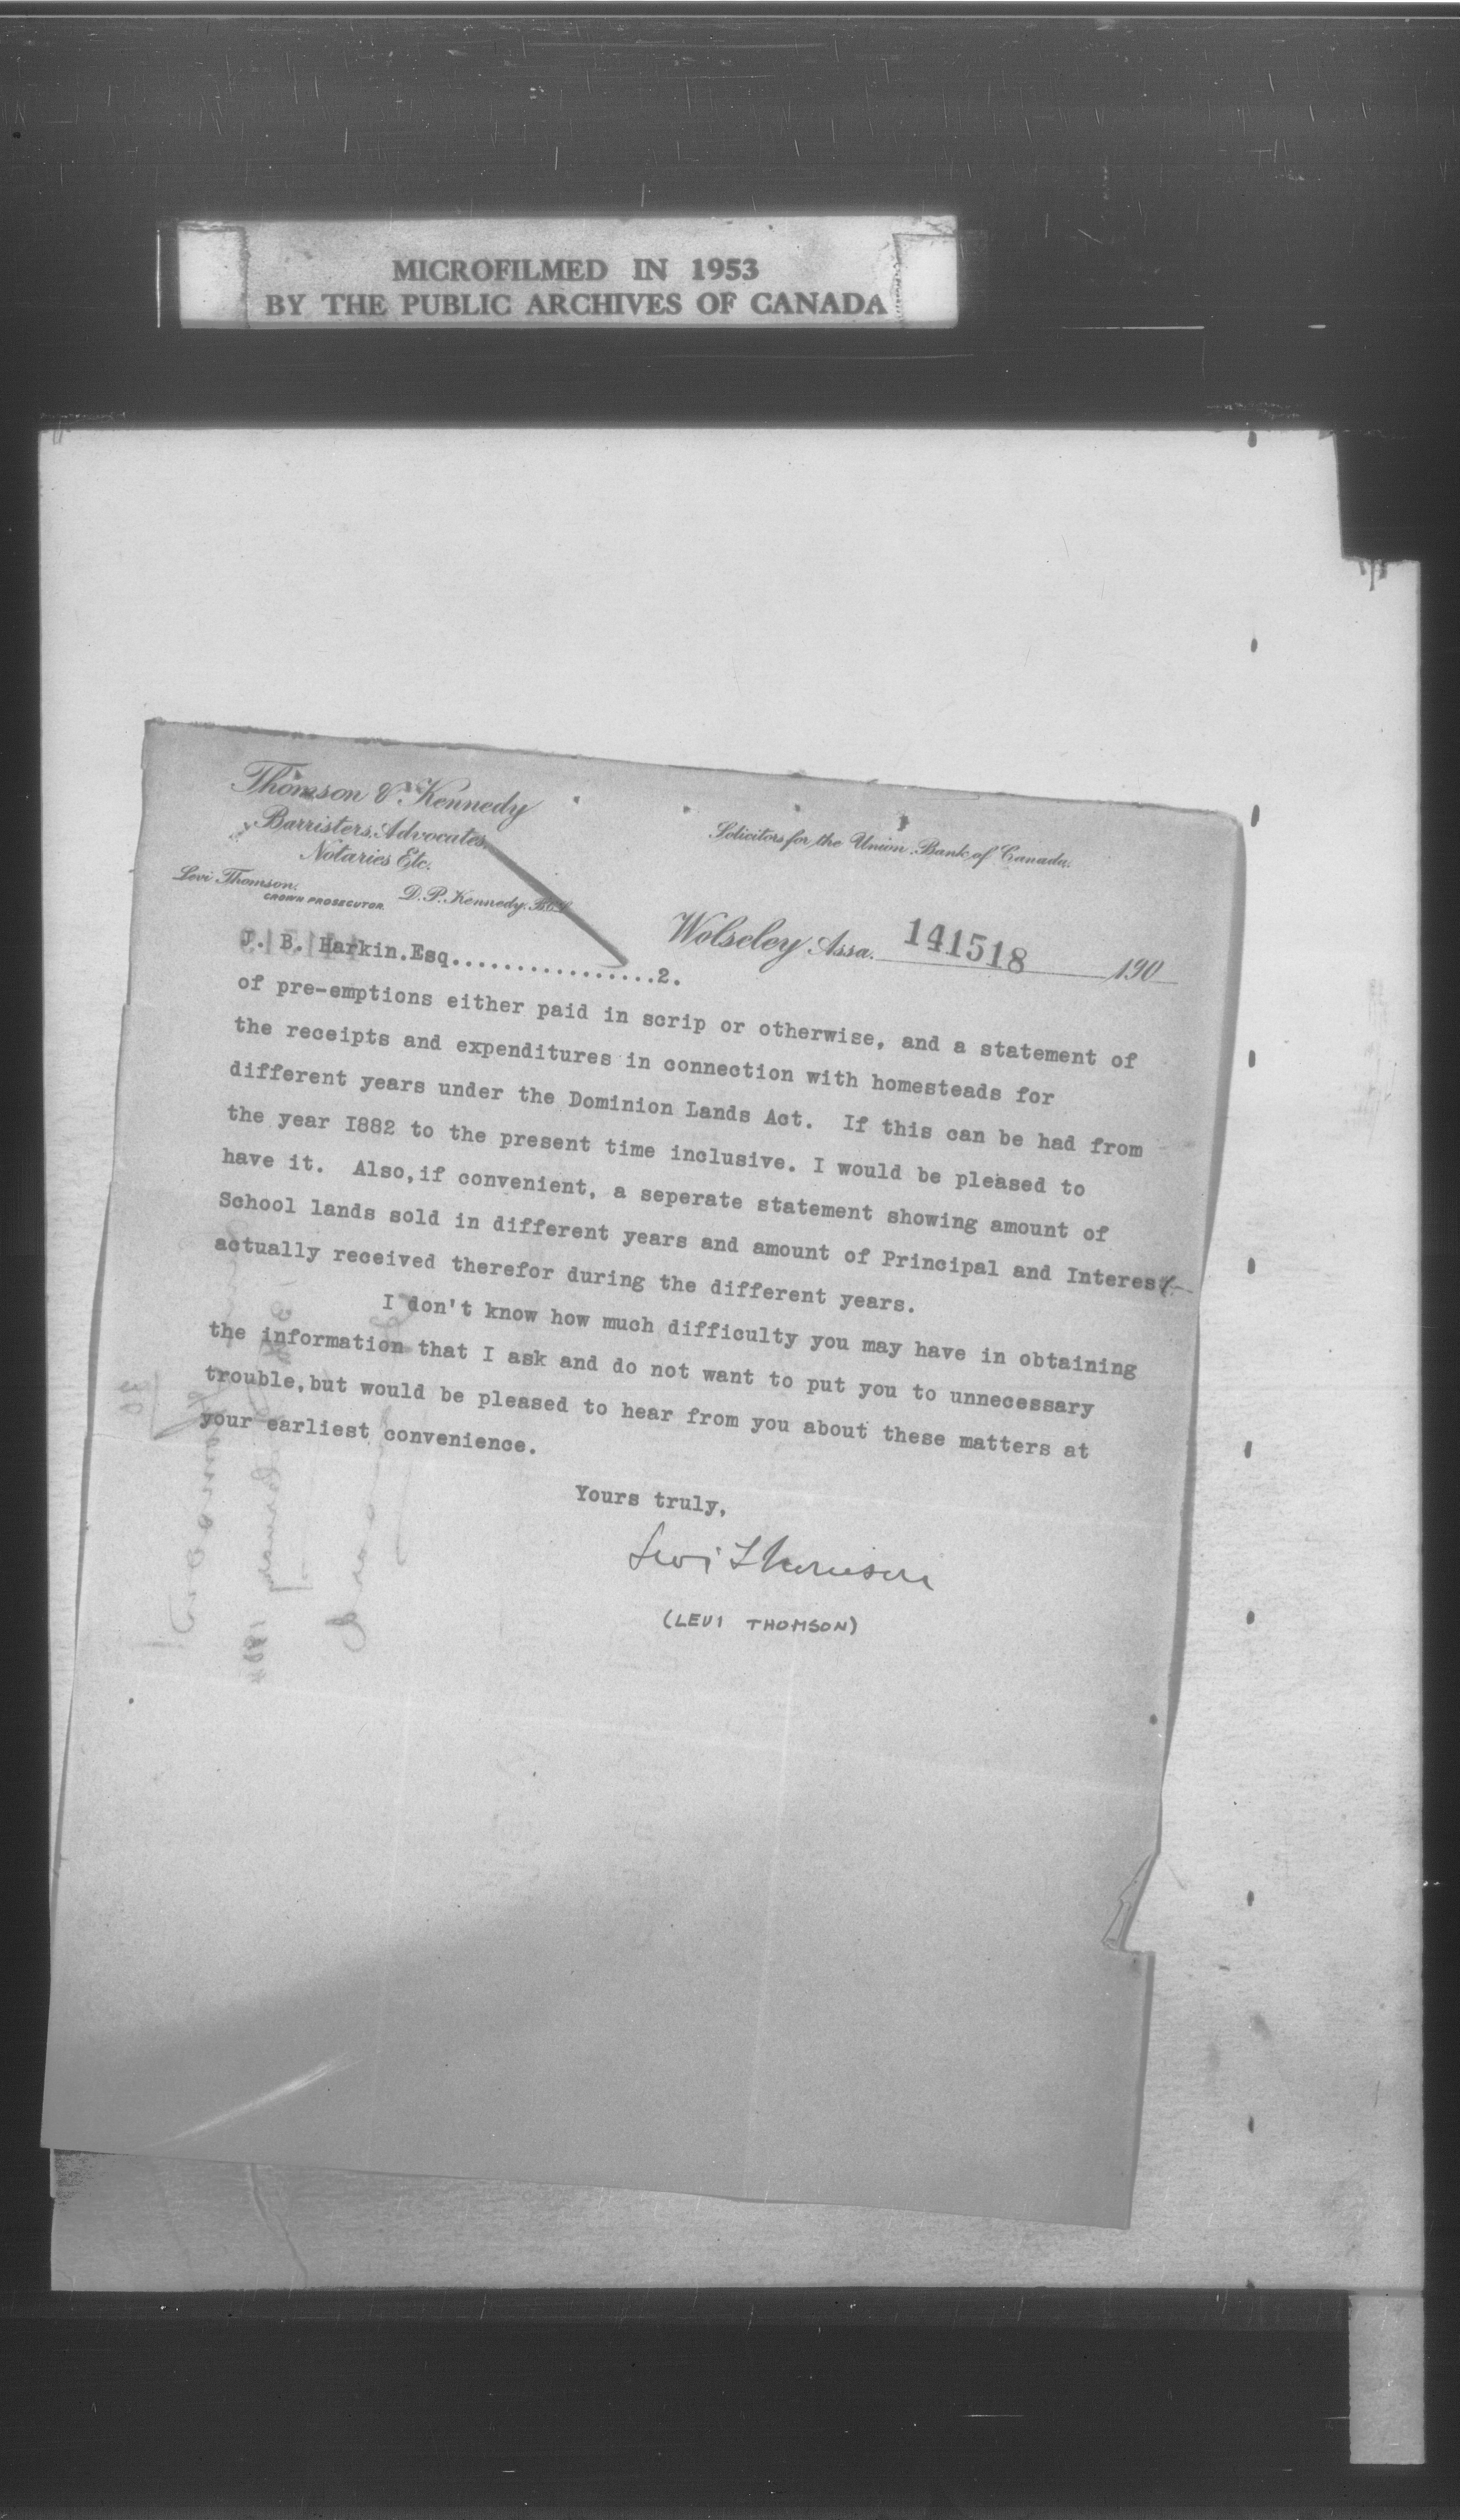 MICROFILMED IN 1953
BY THE PUBLIC ARCHIVES OF CANADA
Thomson & Kennedy
Barristers, Advocates,
Notaries Etc.
Levi Thomson.
CROWN PROSECUTOR.
D. P. Kennedy. B.C.L.
Solicitors for the Union Bank of Canada.
Wolseley Assa. 141518 190
J. B. Harkin.Esq................2.
of pre-emptions either paid in scrip or otherwise, and a statement of
the receipts and expenditures in connection with homesteads for
different years under the Dominion Lands Act. If this can be had from
the year I882 to the present time inclusive. I would be pleased to
have it. Also,if convenient, a seperate statement showing amount of
School lands sold in different years and amount of Principal and Interest
actually received therefor during the different years.
I don't know how much difficulty you may have in obtaining
the information that I ask and do not want to put you to unnecessary
trouble,but would be pleased to hear from you about these matters at
your earliest convenience.
Yours truly,
Levi Thomson
(LEVI THOMSON)